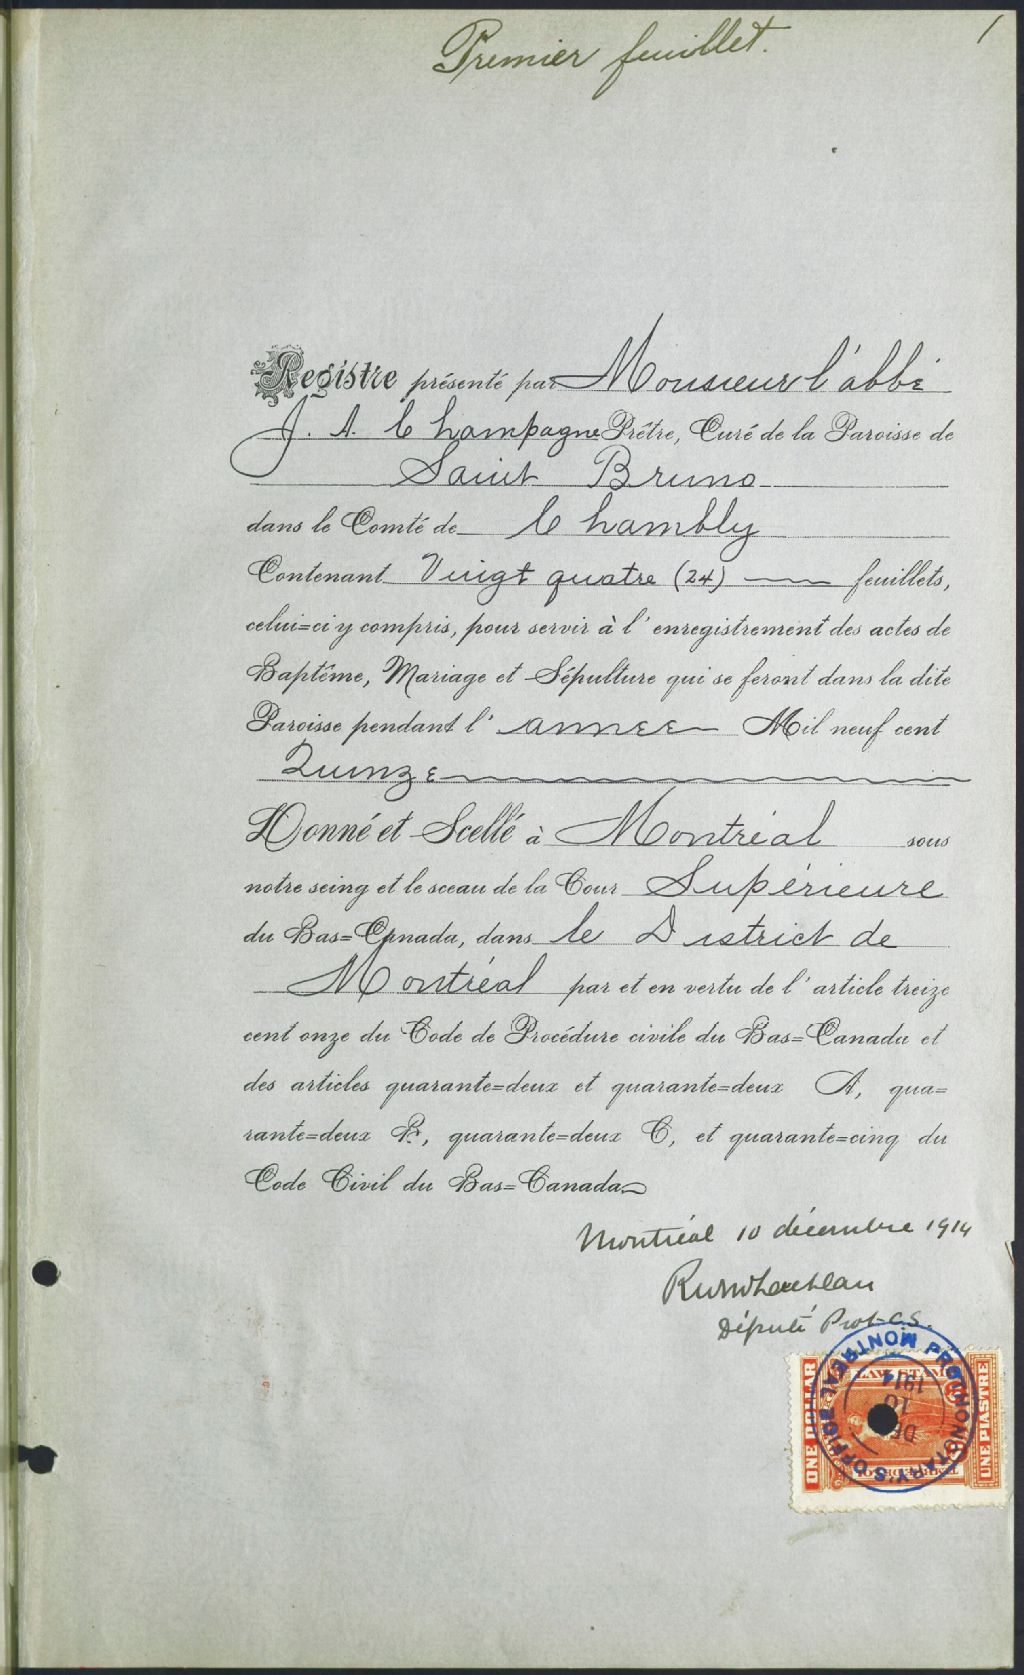 Premier feuillet.
1
Registre présenté par Monsieur l'abbé
J. A. Champagne Prêtre, Curé de la Paroisse de
Saint Bruno
dans le Comté de Chambly
Contenant Vingt quatre (24) feuillets,
celui=ci y compris, pour servir à l'enregistrement des actes de
Baptême, Mariage et Sépulture qui se feront dans la dite
Paroisse pendant l'année Mil neuf cent
Quinze
Donné et Scellé à Montréal sous
notre seing et le sceau de la Cour Supérieure
du Bas=Canada, dans le District de
Montréal par et en vertu de l'article treize
cent onze du Code de Procédure civile du Bas=Canada et
des articles quarante=deux et quarante=deux A, qua=
rante=deux B, quarante=deux C, et quarante=cinq du
Code Civil du Bas=Canada
Montréal 10 décembre 1914
Député Prot. C.S.
PROTHONOTARY'S OFFICE MONTREAL
DEC 10 1914
LAW STAMP
ONE DOLLAR
UNE PIASTRE